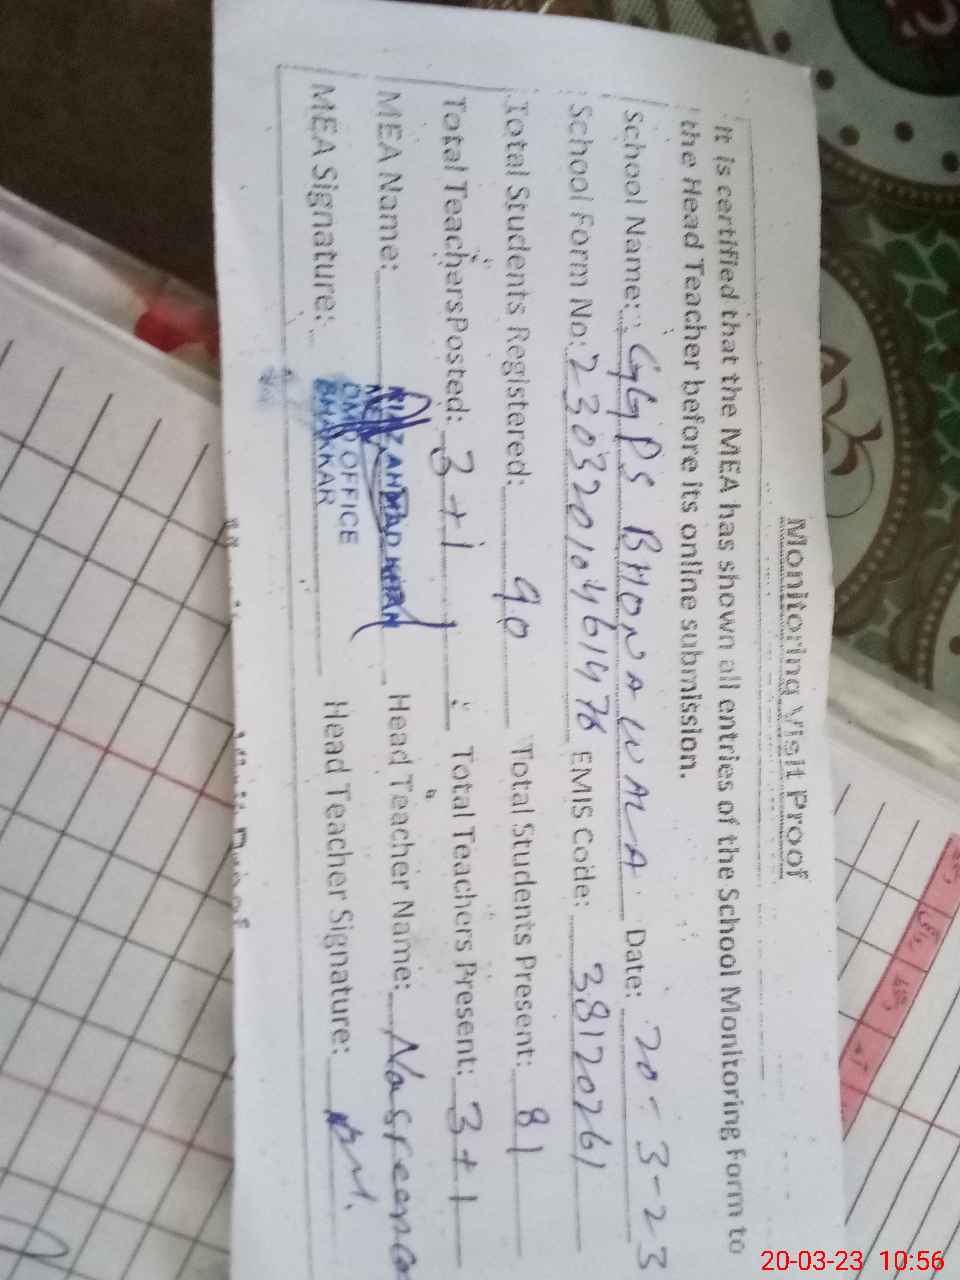 Monitoring Visit Proof
It is certified that the MEA has shown all entries of the School Monitoring Form to
the Head Teacher before its online submission.
School Name: GGPS BHONAWALA Date: 20-3-23
School Form No: 23032010461476 EMIS Code: 38120261
Total Students Registered: 90 Total Students Present: 81
Total Teachers Posted: 3+1 Total Teachers Present: 3+1
MEA Name: RIAZ AHMAD KHAN Head Teacher Name: Nasreen
MEA Signature: Head Teacher Signature:
MEA
DMO OFFICE
BHAKKAR
20-03-23 10:56